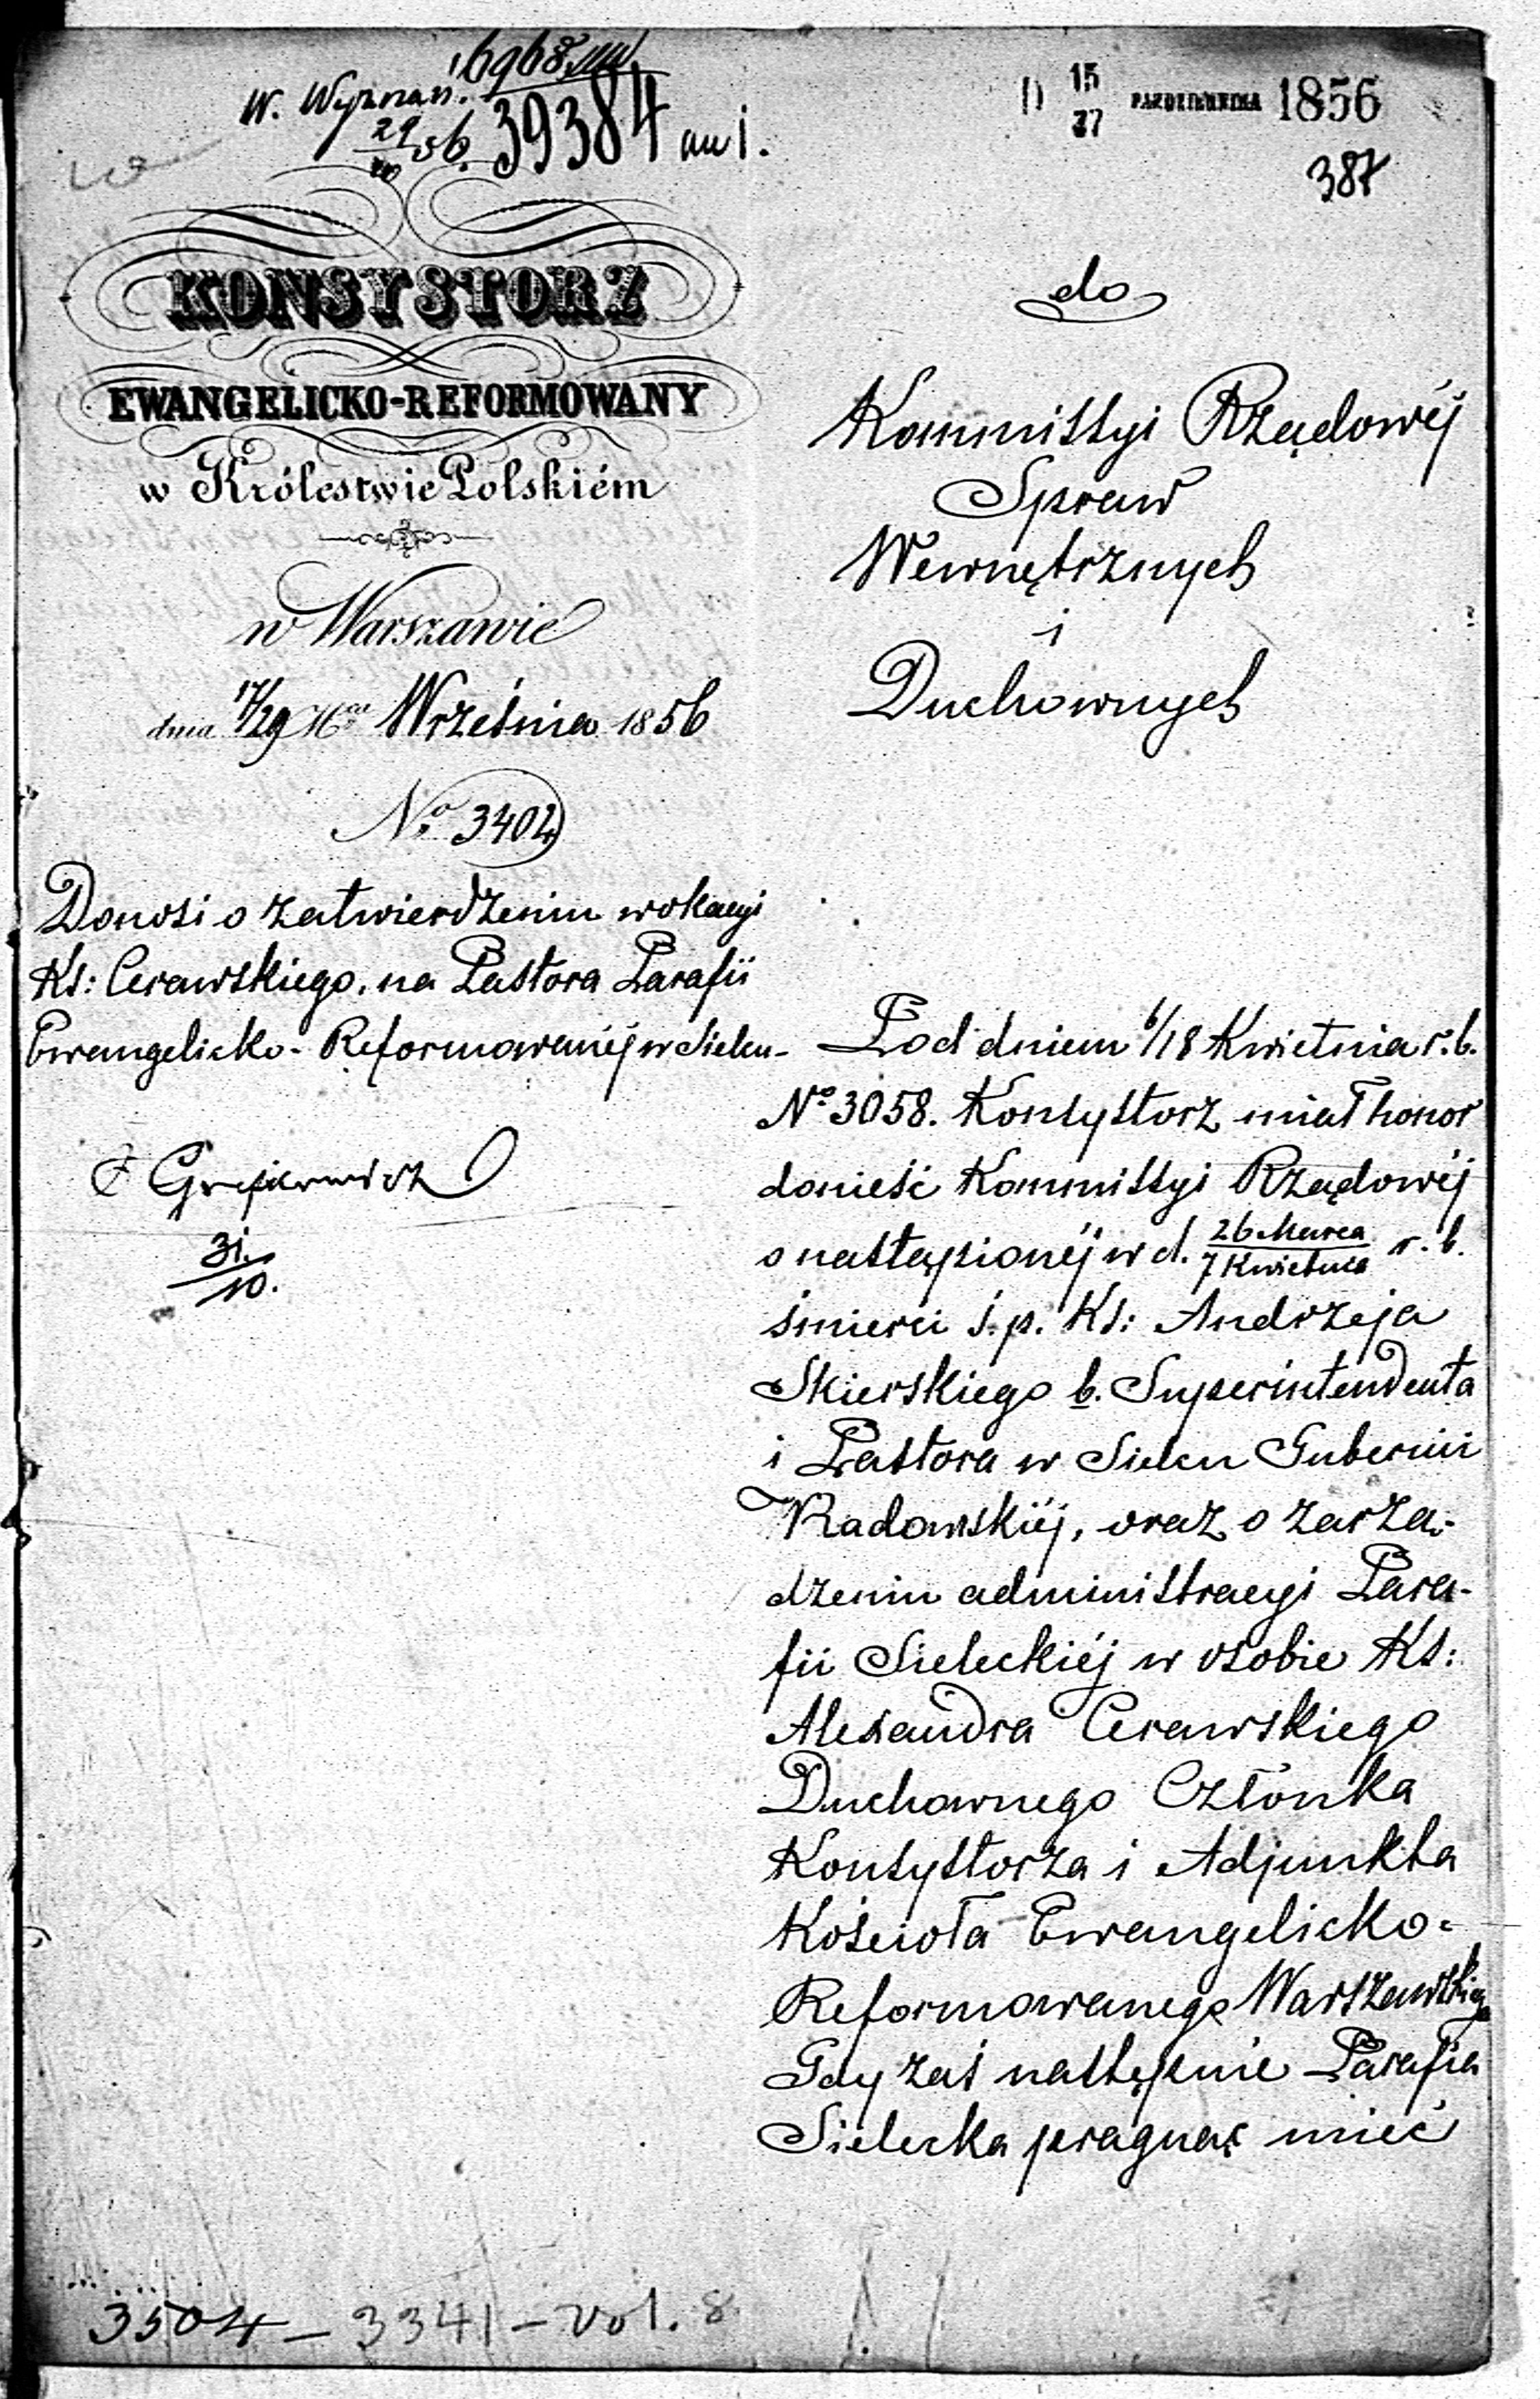 16968
W. Wyznań. 39384 au i.
29/10 56.
D 15/27 PAŹDZIERNIKA 1856
387
KONSYSTORZ
EWANGELICKO-REFORMOWANY
w Królestwie Polskiém
w Warszawie
dnia 17/29 Września 1856
No 3404
Donosi o zatwierdzeniu wokacyi
Ks: Cerawskiego, na Pastora Parafii
Ewangelicko-Reformowanéj w Sielcu-
31./10.
do
Kommissyi Rządowéj
Spraw
Wewnętrznych
i
Duchownych
Pod dniem 6/18 Kwietnia r. b.
No 3058. Konsystorz miał honor
donieść Kommissyi Rządowéj
o nastąpionéj w d. 26 Marca/7 Kwietnia r. b.
śmierci ś. p. Ks: Andrzeja
Skierskiego b. Superintendenta
i Pastora w Sielcu Gubernii
Radomskiéj, oraz o zarzą-
dzeniu administracyi Para-
fii Sieleckiéj w osobie Ks:
Alexandra Cerawskiego
Duchownego Członka
Konsystorza i Adjunkta
Kościoła Ewangelicko-
Reformowanego Warszawskiego
Gdy zaś następnie Parafia
Sielecka pragnąc mieć
3504 - 3341 - vol. 8